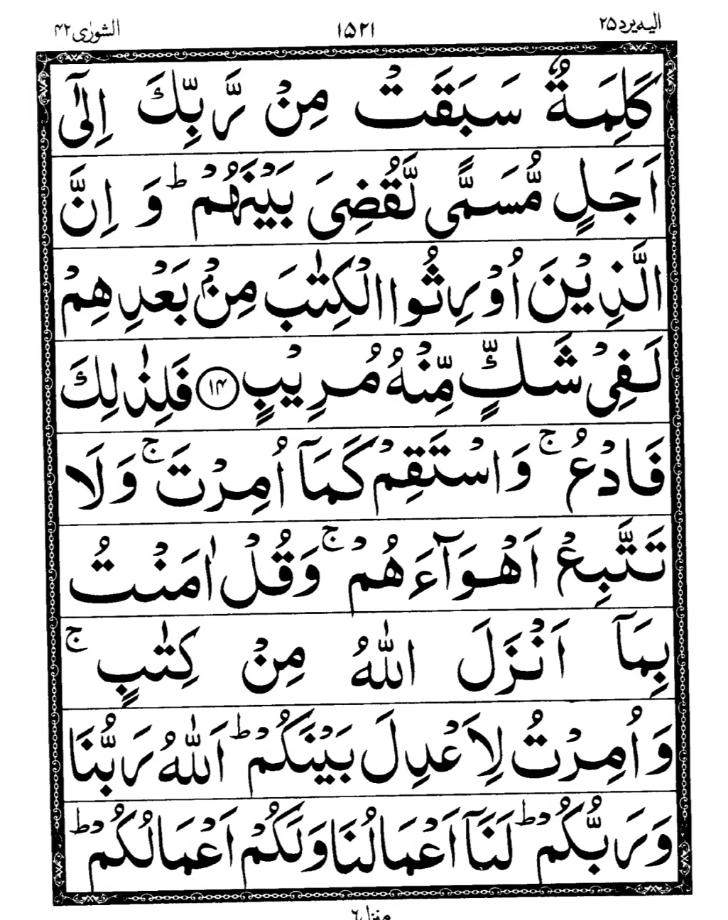 اليه يرد ٢٥ ١٥٢١ الشورٰى ٤٢
كَلِمَةٌ سَبَقَتْ مِنْ رَّبِّكَ اِلٰٓى
اَجَلٍ مُّسَمًّى لَّقُضِىَ بَيْنَهُمْ ؕ وَ اِنَّ
الَّذِيْنَ اُوْرِثُوا الْكِتٰبَ مِنْۢ بَعْدِهِمْ
لَفِىْ شَكٍّ مِّنْهُ مُرِيْبٍ ﴿۱۴﴾ فَلِذٰلِكَ
فَادْعُ ۚ وَاسْتَقِمْ كَمَاۤ اُمِرْتَ ۚ وَلَا
تَتَّبِعْ اَهْوَآءَهُمْ ۚ وَقُلْ اٰمَنْتُ
بِمَاۤ اَنْزَلَ اللّٰهُ مِنْ كِتٰبٍ ۚ
وَاُمِرْتُ لِاَعْدِلَ بَيْنَكُمْ ؕ اَللّٰهُ رَبُّنَا
وَرَبُّكُمْ ؕ لَنَاۤ اَعْمَالُنَا وَلَكُمْ اَعْمَالُكُمْ ؕ
منزل ٦